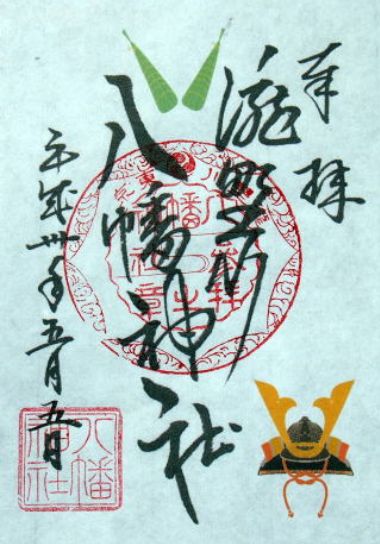 奉拝
瀧野川
八幡神社
平成卅年五月五日
八幡
神社